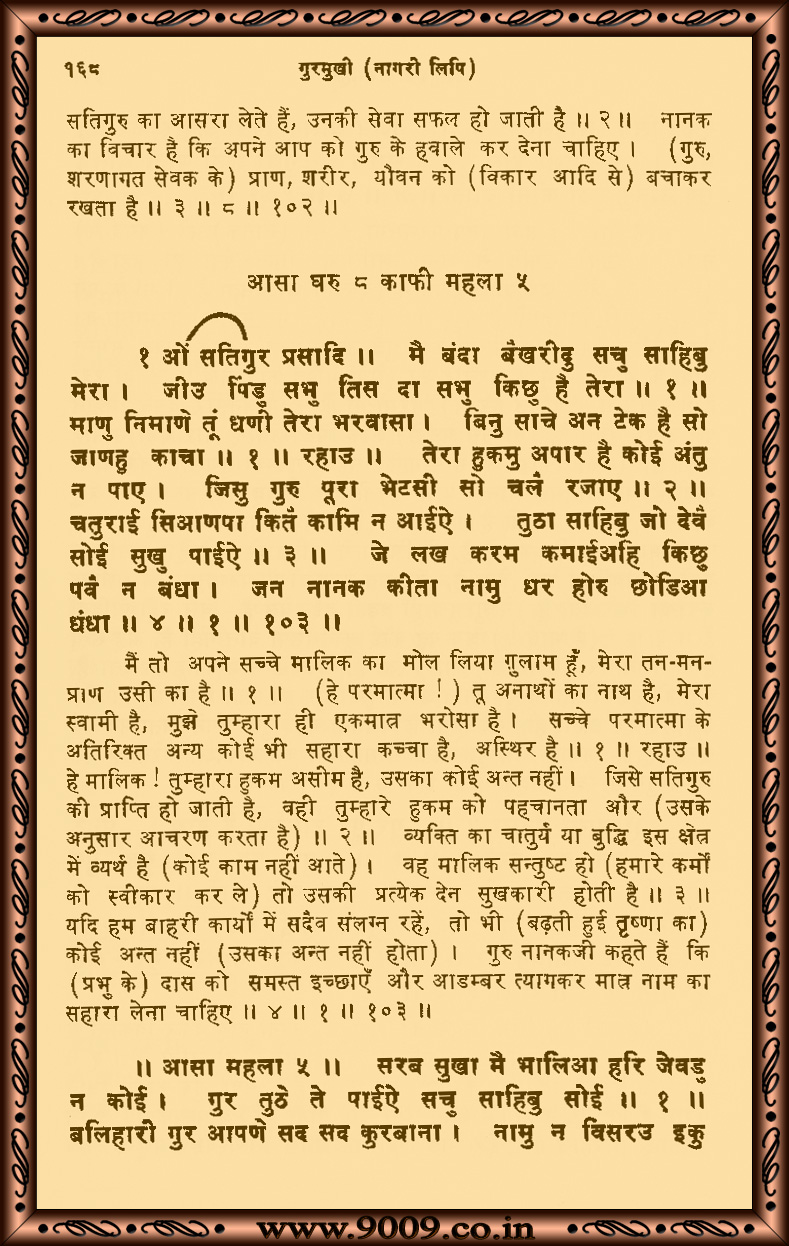 १६८ गुरमुखी (नागरी लिपि)
सतिगुरु का आसरा लेते हैं, उनकी सेवा सफल हो जाती है ॥ २ ॥ नानक
का विचार है कि अपने आप को गुरु के हवाले कर देना चाहिए । (गुरु,
शरणागत सेवक के) प्राण, शरीर, यौवन को (विकार आदि से) बचाकर
रखता है ॥ ३ ॥ ८ ॥ १०२ ॥
आसा घरु ८ काफी महला ५
१ ओं सतिगुर प्रसादि ॥ मै बंदा बैखरीदु सचु साहिबु
मेरा । जीउ पिंडु सभु तिस दा सभु किछु है तेरा ॥ १ ॥
माणु निमाणे तूं धणी तेरा भरवासा । बिनु साचे अन टेक है सो
जाणहु काचा ॥ १ ॥ रहाउ ॥ तेरा हुकमु अपार है कोई अंतु
न पाए । जिसु गुरु पूरा भेटसी सो चलै रजाए ॥ २ ॥
चतुराई सिआणपा कितै कामि न आईऐ । तुठा साहिबु जो देवै
सोई सुखु पाईऐ ॥ ३ ॥ जे लख करम कमाईअहि किछु
पवै न बंधा । जन नानक कीता नामु धर होरु छोडिआ
धंधा ॥ ४ ॥ १ ॥ १०३ ॥
मैं तो अपने सच्चे मालिक का मोल लिया गुलाम हूँ, मेरा तन-मन-
प्राण उसी का है ॥ १ ॥ (हे परमात्मा ! ) तू अनाथों का नाथ है, मेरा
स्वामी है, मुझे तुम्हारा ही एकमात्र भरोसा है । सच्चे परमात्मा के
अतिरिक्त अन्य कोई भी सहारा कच्चा है, अस्थिर है ॥ १ ॥ रहाउ ॥
हे मालिक ! तुम्हारा हुकम असीम है, उसका कोई अन्त नहीं । जिसे सतिगुरु
की प्राप्ति हो जाती है, वही तुम्हारे हुकम को पहचानता और (उसके
अनुसार आचरण करता है) ॥ २ ॥ व्यक्ति का चातुर्य या बुद्धि इस क्षेत्र
में व्यर्थ है (कोई काम नहीं आते) । वह मालिक सन्तुष्ट हो (हमारे कर्मों
को स्वीकार कर ले) तो उसकी प्रत्येक देन सुखकारी होती है ॥ ३ ॥
यदि हम बाहरी कार्यों में सदैव संलग्न रहें, तो भी (बढ़ती हुई तृष्णा का)
कोई अन्त नहीं (उसका अन्त नहीं होता) । गुरु नानकजी कहते हैं कि
(प्रभु के) दास को समस्त इच्छाएँ और आडम्बर त्यागकर मात्र नाम का
सहारा लेना चाहिए ॥ ४ ॥ १ ॥ १०३ ॥
॥ आसा महला ५ ॥ सरब सुखा मै भालिआ हरि जेवडु
न कोई । गुर तुठे ते पाईऐ सचु साहिबु सोई ॥ १ ॥
बलिहारी गुर आपणे सद सद कुरबाना । नामु न विसरउ इकु
www.9009.co.in